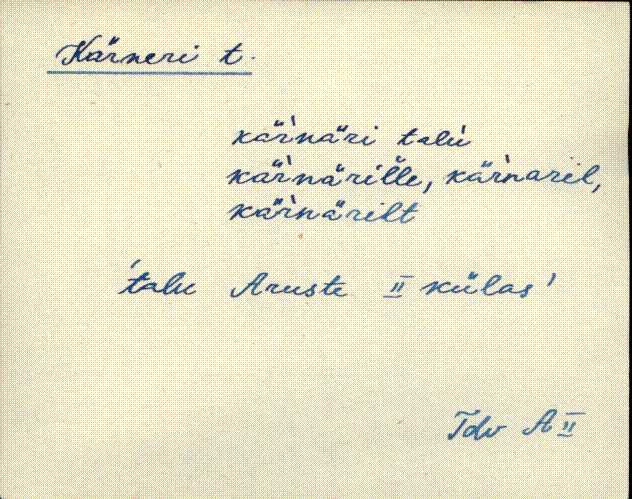 Kärneri t.
kär̀näri talu
kär̀närille, kär̀naril,
kär̀närilt
'talu Aruste II külas'
Tdv A II